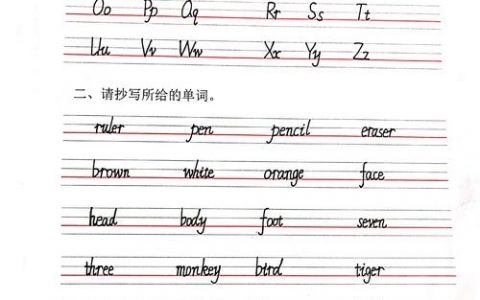 Oo Pp Qq Rr Ss Tt
Uu Vv Ww Xx Yy Zz
二、请抄写所给的单词。
ruler pen pencil eraser
brown white orange face
head body foot seven
three monkey bird tiger